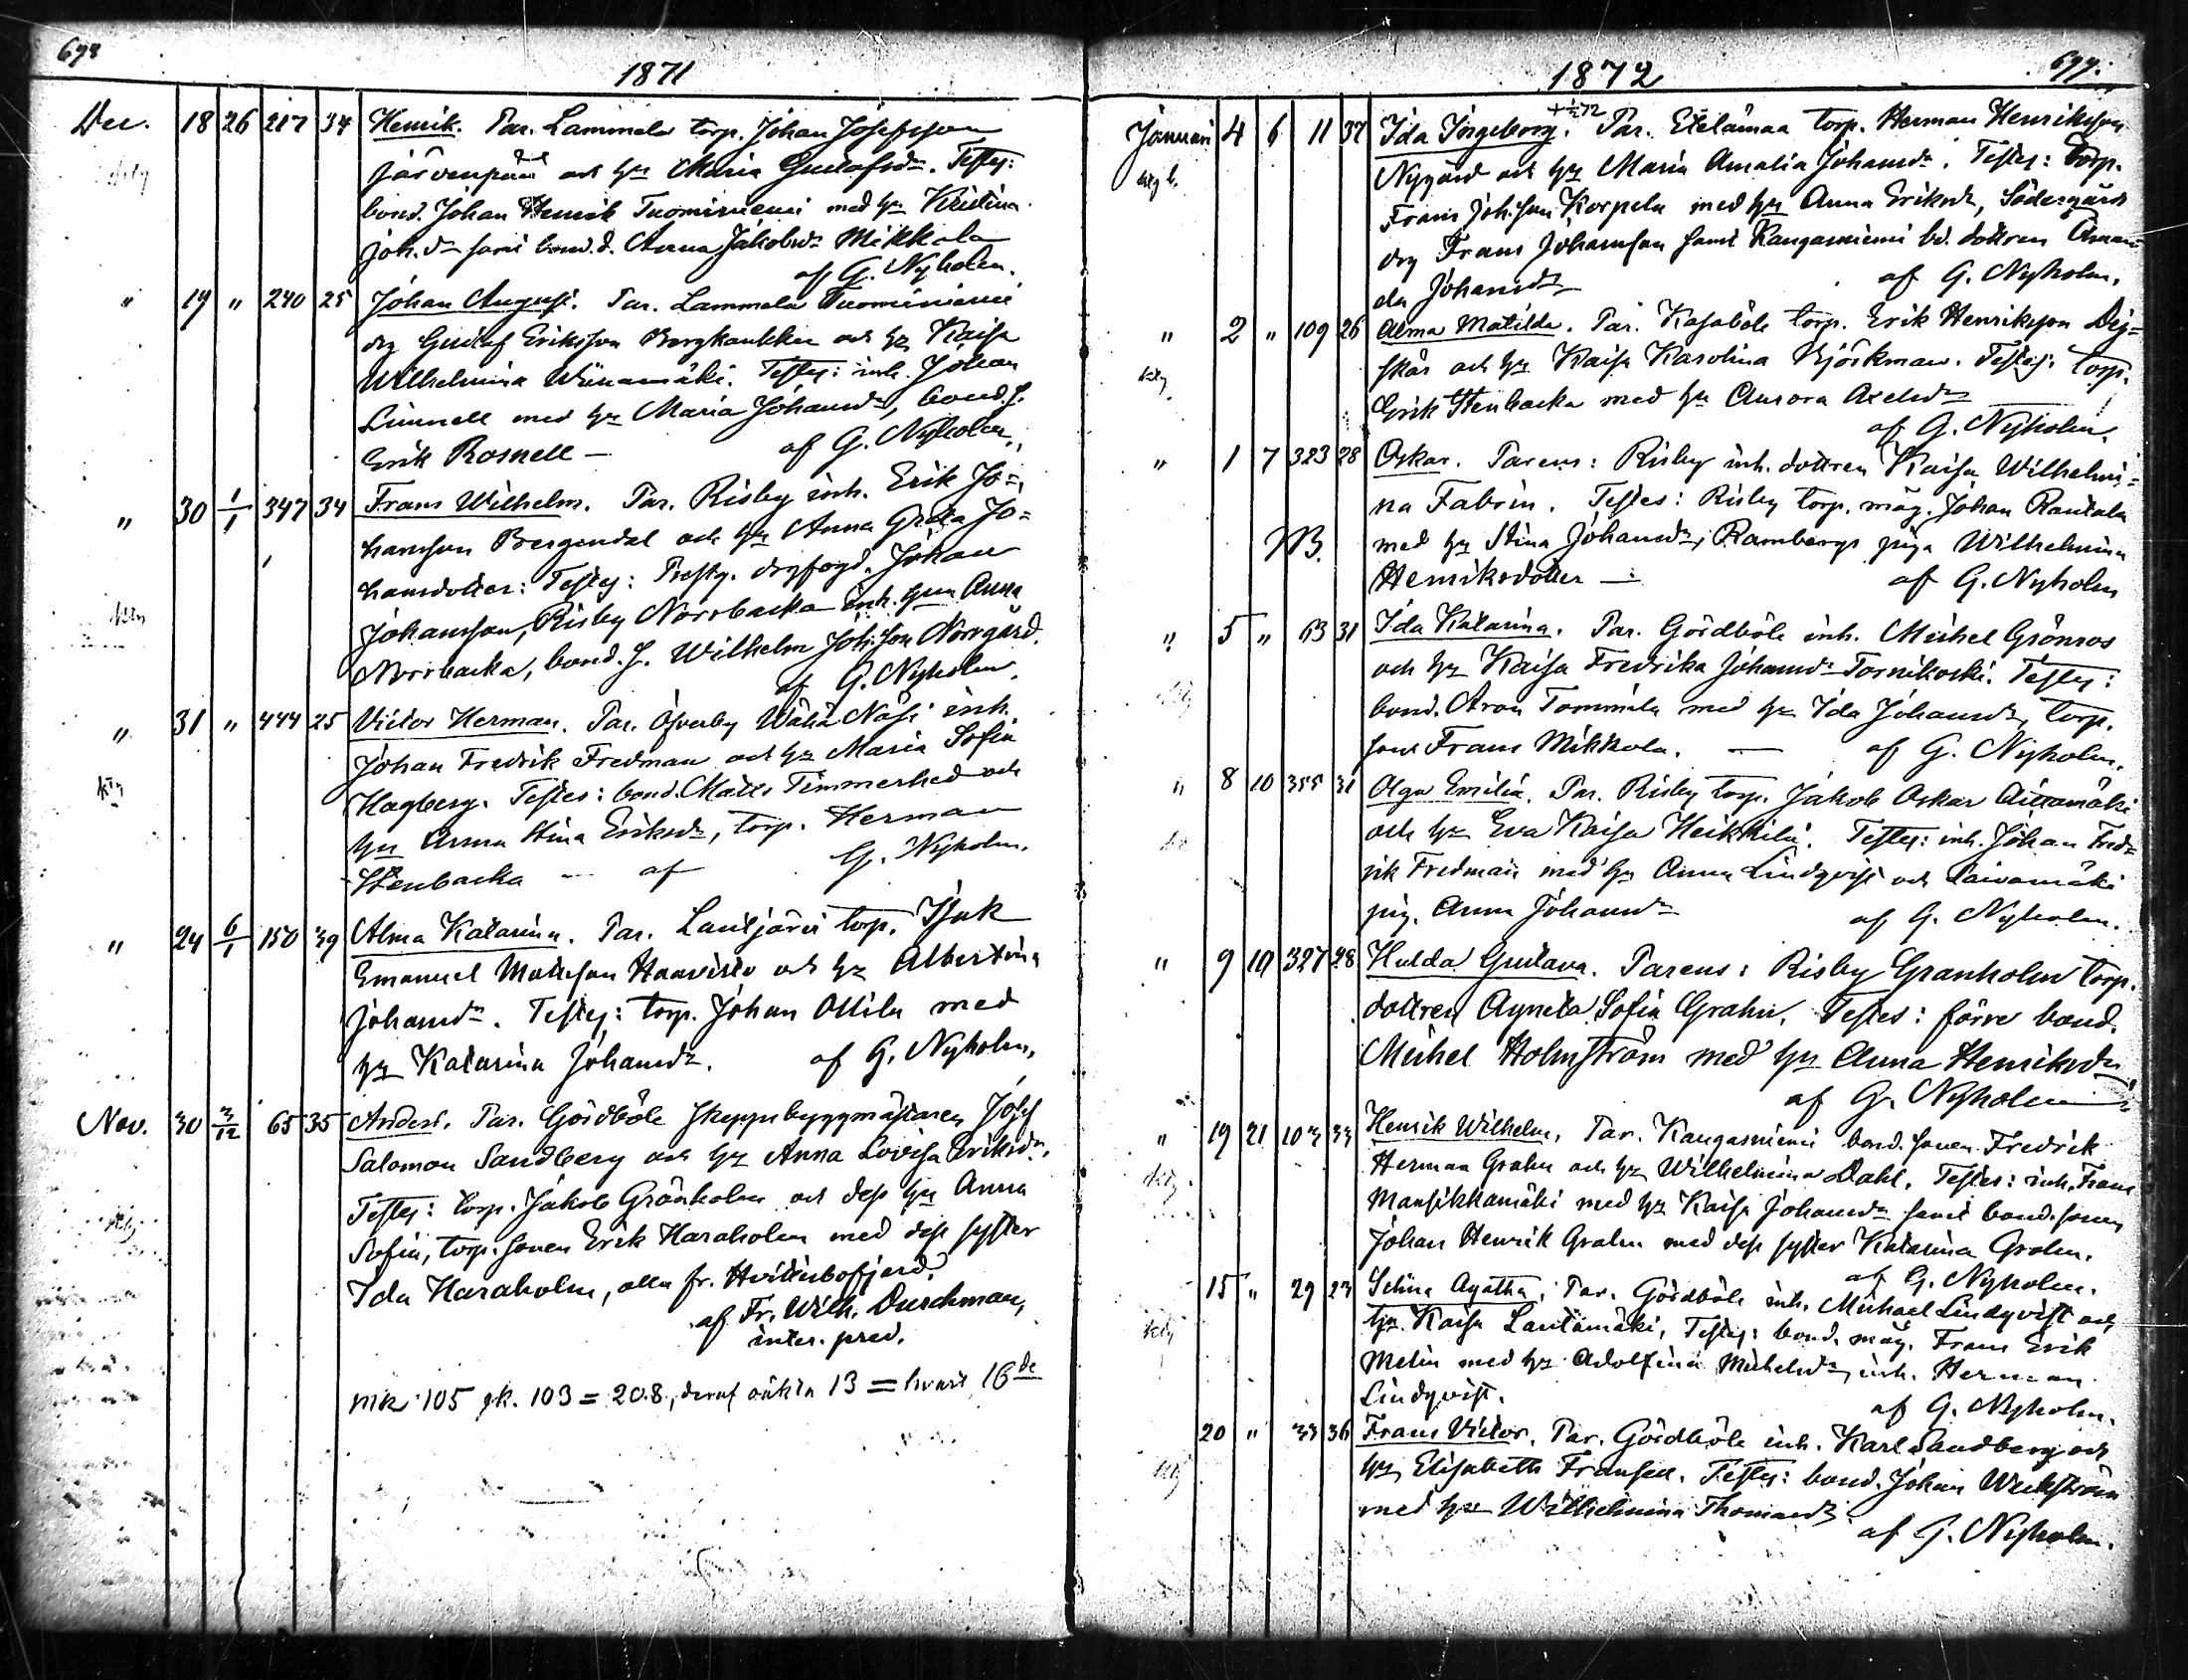 698
1871
Dec. 18 26 217 34 Henrik. Par. Lammela torp. Johan Josefsson
Järvenpää och hu Maria Gustafsdr. Testes:
bond. Johan Henrik Tuominiemi med hu Kristina
Joh.dr samt bond.d. Anna Jakobsdr Mikkola
af G. Nyholm.
" 19 " 240 25 Johan August. Par. Lammela Tuominiemi
drg Gustaf Eriksson Bergkankka och hu Kaisa
Wilhelmina Wiinamäki. Testes: inh. Johan
Linnell med hu Maria Johansdr, bond.s.
Erik Rosnell — af G. Nyholm.
" 30 1/1 347 34 Frans Wilhelm. Par. Risby inh. Erik Jo=
hansson Bergendal och hu Anna Greta Jo=
hansdotter: Testes: Prestg. drgfogd. Johan
Johansson, Risby Norrbacka inh. hun Anna
Norrbacka, bond. s. Wilhelm Joh:son Norrgård.
af G. Nyholm.
" 31 " 444 25 Victor Herman. Par. Öfverby Wähä Näsi inh.
Johan Fredrik Fredman och hu Maria Sofia
Hagberg. Testes: bond. Matts Timmerhed och
hu Anna Stina Eriksdr, torp. Herman
Stenbacka — af G. Nyholm.
" 24 6/1 150 39 Alma Katarina. Par. Lautjärvi torp. Isak
Emanuel Matsson Haavisto och hu Albertina
Johansdr. Testes: torp. Johan Ollila med
hu Katarina Johansdr. af G. Nyholm.
Nov. 30 3/12 65 35 Anders. Par. Gördböle skeppsbyggmästaren Josef
Salomon Sandberg och hu Anna Lovisa Eriksdr.
Testes: torp. Jakob Grönholm och dess hu Anna
Sofia, torp. sonen Erik Haraholm med dess syster
Ida Haraholm, alla fr. Hvittisbofjerd.
af Fr. Wilh. Durchman,
inter. pred.
mk 105 qk. 103 = 208, deraf oäkta 13 = hvart 16de
699.
1872
Januari 4 6 11 37 Ida Ingeborg. Par. Etelämaa torp. Herman Henriksson
Nygård och hu Maria Amalia Johansdr. Testes: torp.
Frans Joh:son Korpela med hu Anna Eriksdr, Södergårds
drg Frans Johansson samt Kangasniemi bd. dottren Aman=
da Johansdr — af G. Nyholm.
" 2 " 109 26 Alma Matilda. Par. Kasaböle torp. Erik Henriksson Dej=
skär och hu Kaisa Karolina Björkman. Testes: torp.
Erik Stenbacka med hu Aurora Axelsdr
af G. Nyholm.
" 1 7 323 28 Oskar. Parens: Risby inh. dottren Kaisa Wilhelmi=
na Fabrin. Testes: Risby torp. måg. Johan Rantala
NB. med hu Stina Johansdr, Rambergs piga Wilhelmina
Henriksdotter — af G. Nyholm
" 5 " 63 31 Ida Katarina. Par. Gördböle inh. Mickel Grönroos
och hu Kaisa Fredrika Johansdr Tornikoski. Testes:
bond. Aron Tommila med hu Ida Johansdr, torp.
sons Frans Mikkola. — af G. Nyholm.
" 8 10 355 31 Olga Emilia. Par. Risby torp. Jakob Oskar Aittamäki
och hu Eva Kaisa Heikkilä. Testes: inh. Johan Fred=
rik Fredman med hu Anna Lindqvist och Laivamäki
pig. Anna Johansdr af G. Nyholm.
" 9 10 327 28 Hulda Gustava. Parens: Risby Granholm torp.
dottren Agneta Sofia Grahn. Testes: förre bond.
Mickel Holmström med hu Anna Henriksdr
af G. Nyholm
" 19 21 103 33 Henrik Wilhelm. Par. Kangasniemi bond. sonen Fredrik
Herman Grahn och hu Wilhelmina Dahl. Testes: inh. Frans
Mansikkamäki med hu Kaisa Johansdr samt bond. sonen
Johan Henrik Grahn med dess syster Katarina Grahn.
af G. Nyholm.
15 " 29 23 Selina Agatha. Par. Gördböle inh. Mickael Lindqvist och
hu Kaisa Lautamäki. Testes: bond. måg. Frans Erik
Melin med hu Adolfina Mickelsdr, inh. Herman
Lindqvist. af G. Nyholm.
20 " 33 36 Frans Victor. Par. Gördböle inh. Karl Sandberg och
hu Elisabeth Franssen. Testes: bond. Johan Weckström
med hu Wilhelmina Thomasdr
af G. Nyholm.